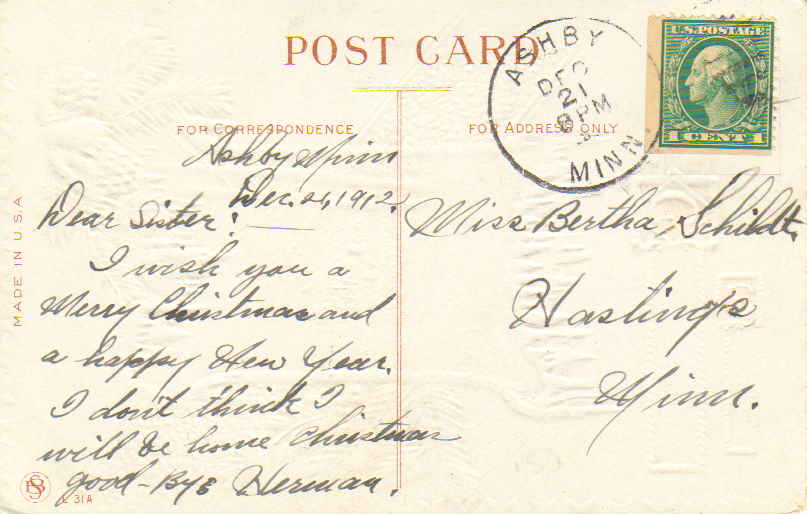 POST CARD
FOR CORRESPONDENCE
FOR ADDRESS ONLY
ASHBY
DEC
21
8 PM
MINN.
U.S. POSTAGE
1 CENT 1
Ashby Minn
Dec. 21, 1912.
Dear Sister!
I wish you a
Merry Christmas and
a happy New Year.
I don't think I
will be home Christmas
good-Bye Herman.
Miss Bertha Schildt.
Hastings
Minn.
MADE IN U.S.A
L 31A